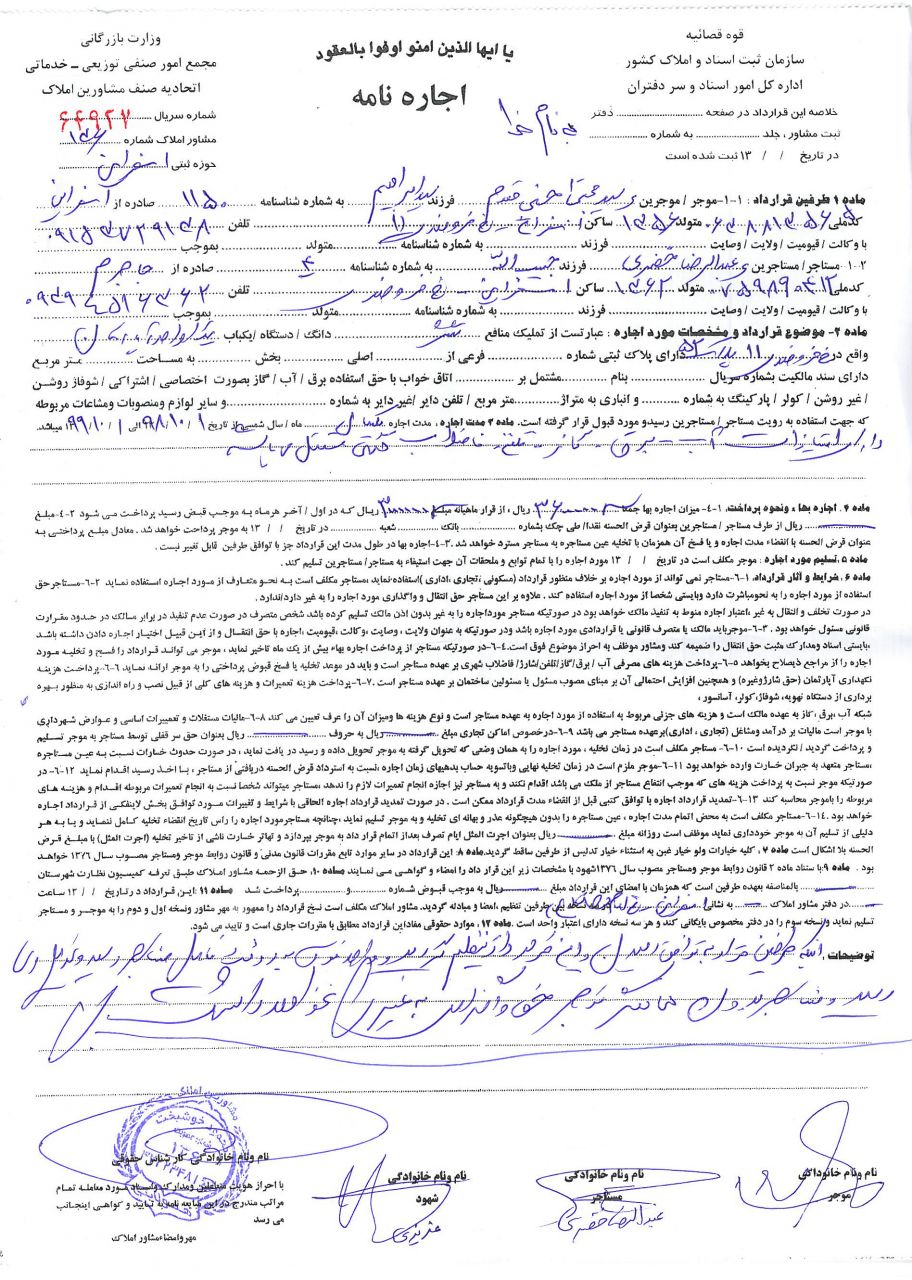 یا ایها الذین امنو اوفوا بالعقود
اجاره نامه
بنام خدا
قوه قضائیه
سازمان ثبت اسناد و املاک کشور
اداره کل امور اسناد و سر دفتران
خلاصه این قرارداد در صفحه ........ دفتر
ثبت مشاور ، جلد ........ به شماره ........
در تاریخ / / ۱۳ ثبت شده است
وزارت بازرگانی
مجمع امور صنفی توزیعی ـ خدماتی
اتحادیه صنف مشاورین املاک
شماره سریال ۶۴۹۲۷
مشاور املاک شماره ۱۳۶
حوزه ثبتی اسفراین
ماده ۱ طرفین قرارداد : ۱-۱-موجر / موجرین سید مجتبی فرزند سید ابراهیم به شماره شناسنامه ۱۱۵۰ صادره از اسفراین
کدملی متولد ۱۳۵۶ ساکن اسفراین تلفن ۰۹۱۵۳۷۲۹۱۳۸
با وکالت / قیومیت / ولایت / وصایت ........ فرزند ........ به شماره شناسنامه ........ متولد ........ بموجب
۱-۲ مستاجر/ مستاجرین عبدالرضا خضری فرزند حبیب الله به شماره شناسنامه ۴ صادره از جاجرم
کدملی متولد ۱۳۶۲ ساکن اسفراین تلفن
با وکالت / قیومیت / ولایت / وصایت ........ فرزند ........ به شماره شناسنامه ........ متولد ........ بموجب
ماده ۲- موضوع قرارداد و مشخصات مورد اجاره : عبارتست از تملیک منافع شش دانگ / دستگاه /یکباب
واقع در ۱۱ دارای پلاک ثبتی شماره ........ فرعی از ........ اصلی ........ بخش ........ به مساحت ........ متر مربع
دارای سند مالکیت بشماره سریال ........ بنام ........ مشتمل بر ........ اتاق خواب با حق استفاده برق / آب / گاز بصورت اختصاصی / اشتراکی / شوفاژ روشن
/ غیر روشن / کولر / پارکینگ به شماره ........ و انباری به متراژ ........ متر مربع / تلفن دایر /غیر دایر به شماره ........ و سایر لوازم ومنصوبات ومشاعات مربوطه
که جهت استفاده به رویت مستاجر / مستاجرین رسیدو مورد قبول قرار گرفته است. ماده ۳ مدت اجاره ، مدت اجاره یکسال ماه / سال شمسی از تاریخ ۹۸/۱۰/۱ الی ۹۹/۱۰/۱ میباشد.
دارای امتیازات آب - برق - گاز - تلفن
ماده ۴ . اجاره بها ، ونحوه پرداخت. ۱-۴- میزان اجاره بها جمعا ریال ، از قرار ماهیانه مبلغ ریال که در اول / آخر هرماه به موجب قبض رسید پرداخت می شود ۲-۴-مبلغ
........ ریال از طرف مستاجر / مستاجرین بعنوان قرض الحسنه نقدا/ طی چک بشماره ........ بانک ........ شعبه ........ در تاریخ / / ۱۳ به موجر پرداخت خواهد شد . معادل مبلغ پرداختی به
عنوان قرض الحسنه با انقضاء مدت اجاره و یا فسخ آن همزمان با تخلیه عین مستاجره به مستاجر مسترد خواهد شد .۳-۴-اجاره بها در طول مدت این قرارداد جز با توافق طرفین قابل تغییر نیست .
ماده ۵. تسلیم مورد اجاره : موجر مکلف است در تاریخ / / ۱۳ مورد اجاره را با تمام توابع و ملحقات آن جهت استیفاء به مستاجر/ مستاجرین تسلیم کند .
ماده ۶ . شرایط و آثار قرارداد. ۱-۶-مستاجر نمی تواند از مورد اجاره بر خلاف منظور قرارداد (مسکونی ،تجاری ،اداری )استفاده نماید ،مستاجر مکلف است به نحو متعارف از مورد اجاره استفاده نماید ۲-۶-مستاجرحق
استفاده از مورد اجاره را به نحومباشرت دارد وبایستی شخصا از مورد اجاره استفاده کند . علاوه بر این مستاجر حق انتقال و واگذاری مورد اجاره را به غیر دارد/ندارد.
در صورت تخلف و انتقال به غیر ،اعتبار اجاره منوط به تنفیذ مالک خواهد بود در صورتیکه مستاجر مورداجاره را به غیر بدون اذن مالک تسلیم کرده باشد شخص متصرف در صورت عدم تنفیذ در برابر مالک در حدود مقررات
قانونی مسئول خواهد بود . ۳-۶-موجرباید مالک یا متصرف قانونی یا قراردادی مورد اجاره باشد ودر صورتیکه به عنوان ولایت ، وصایت ،وکالت ،قیومیت ،اجاره با حق انتقال و از این قبیل اختیار اجاره دادن داشته باشد
،بایستی اسناد ومدارک مثبت حق انتقال را ضمیمه کند ومشاور موظف به احراز موضوع فوق است.۴-۶-در صورتیکه مستاجر از پرداخت اجاره بهاء بیش از یک ماه تاخیر نماید ، موجر می تواند قرارداد را فسخ و تخلیه مورد
اجاره را از مراجع ذیصلاح بخواهد ۵-۶-پرداخت هزینه های مصرفی آب / برق/گاز/تلفن/شارژ/ فاضلاب شهری بر عهده مستاجر است و باید در موعد تخلیه یا فسخ قبوض پرداختی را به موجر ارائه نماید .۶-۶-پرداخت هزینه
نگهداری آپارتمان (حق شارژوغیره) و همچنین افزایش احتمالی آن بر مبنای مصوب مسئول یا مسئولین ساختمان بر عهده مستاجر است .۷-۶-پرداخت هزینه تعمیرات و هزینه های کلی از قبیل نصب و راه اندازی به منظور بهره
برداری از دستگاه تهویه، شوفاژ،کولر، آسانسور ،
شبکه آب ،برق ،گاز به عهده مالک است و هزینه های جزئی مربوط به استفاده از مورد اجاره به عهده مستاجر است و نوع هزینه ها ومیزان آن را عرف تعیین می کند ۸-۶-مالیات مستغلات و تعمیرات اساسی و عوارض شهرداری
با موجر است مالیات بر درآمد ومشاغل (تجاری ، اداری)برعهده مستاجر می باشد ۹-۶-درخصوص اماکن تجاری مبلغ ........ ریال به حروف ........ ریال بعنوان حق سر قفلی توسط مستاجر به موجر تسلیم
و پرداخت گردید / نگردیده است ۱۰-۶- مستاجر مکلف است در زمان تخلیه ، مورد اجاره را به همان وضعی که تحویل گرفته به موجر تحویل داده و رسید در یافت نماید ، در صورت حدوث خسارات نسبت به عین مستاجره
،مستاجر متعهد به جبران خسارت وارده خواهد بود ۱۱-۶-موجر ملزم است در زمان تخلیه نهایی وباتسویه حساب بدهیهای زمان اجاره ،نسبت به استرداد قرض الحسنه دریافتی از مستاجر ، با اخذ رسید اقدام نماید ۱۲-۶- در
صورتیکه موجر نسبت به پرداخت هزینه های که موجب انتفاع مستاجر از ملک می باشد اقدام نکند و به مستاجر نیز اجازه انجام تعمیرات لازم را ندهد ،مستاجر میتواند شخصا نسبت به انجام تعمیرات مربوطه اقدام و هزینه های
مربوطه را باموجر محاسبه کند ۱۳-۶-تمدید قرارداد اجاره با توافق کتبی قبل از انقضاء مدت قرارداد ممکن است . در صورت تمدید قرارداد اجاره الحاقی با شرایط و تغییرات مورد توافق بخش لاینفکی از قرارداد اجاره
خواهد بود .۱۴-۶- مستاجر مکلف است به محض اتمام مدت اجاره ، عین مستاجره را بدون هیچگونه عذر و بهانه ای تخلیه و به موجر تسلیم نماید، چنانچه مستاجرمورد اجاره را راس تاریخ انقضاء تخلیه کامل ننماید و یا به هر
دلیلی از تسلیم آن به موجر خودداری نماید موظف است روزانه مبلغ ........ ریال بعنوان اجرت المثل ایام تصرف بعداز اتمام قرار داد به موجر بپردازد و تهاتر خسارت ناشی از تاخیر تخلیه (اجرت المثل) با مبلغ قرض
الحسنه بلا اشکال است ماده ۷، کلیه خیارات ولو خیار غبن به استثناء خیار تدلیس از طرفین ساقط گردید.ماده ۸: این قرارداد در سایر موارد تابع مقررات قانون مدنی و قانون روابط موجر ومستاجر مصوب سال ۱۳۷۶ خواهد
بود . ماده ۹،با ستناد ماده ۲ قانون روابط موجر ومستاجر مصوب سال ۱۳۷۶شهود با مشخصات زیر این قرار داد را امضاء و گواهی می نمایند ماده ۱۰، حق الزحمه مشاور املاک طبق تعرفه کمیسیون نظارت شهرستان
........ بالمناصفه بعهده طرفین است که همزمان با امضای این قرارداد مبلغ ........ ریال به موجب قبوض شماره ........ و ........ پرداخت شد ماده ۱۱ این قرارداد در تاریخ / / ۱۳ ساعت
........ در دفتر مشاور املاک ........ به نشانی اسفراین نسخه بین طرفین تنظیم، امضا و مبادله گردید. مشاور املاک مکلف است نسخ قرارداد را ممهور به مهر مشاور ونسخه اول و دوم را به موجر و مستاجر
تسلیم نماید ونسخه سوم را در دفتر مخصوص بایگانی کند و هر سه نسخه دارای اعتبار واحد است . ماده ۱۲، موارد حقوقی مفاداین قرارداد مطابق با مقررات جاری است و تایید می شود.
توضیحات .
موجر حق به غیر نخواهد داشت
نام ونام خانوادگی
موجر
نام ونام خانوادگی
مستاجر
عبدالرضا خضری
نام ونام خانوادگی
شهود
عزیزی
نام ونام خانوادگی کارشناس حقوقی
با احراز هویت متعاملین ومدارک واسناد مورد معامله تمام
مراتب مندرج در این مبایعه نامه به تایید و گواهی اینجانب
می رسد
مهر وامضاءمشاور املاک
مشاورین املاک
خوشبخت